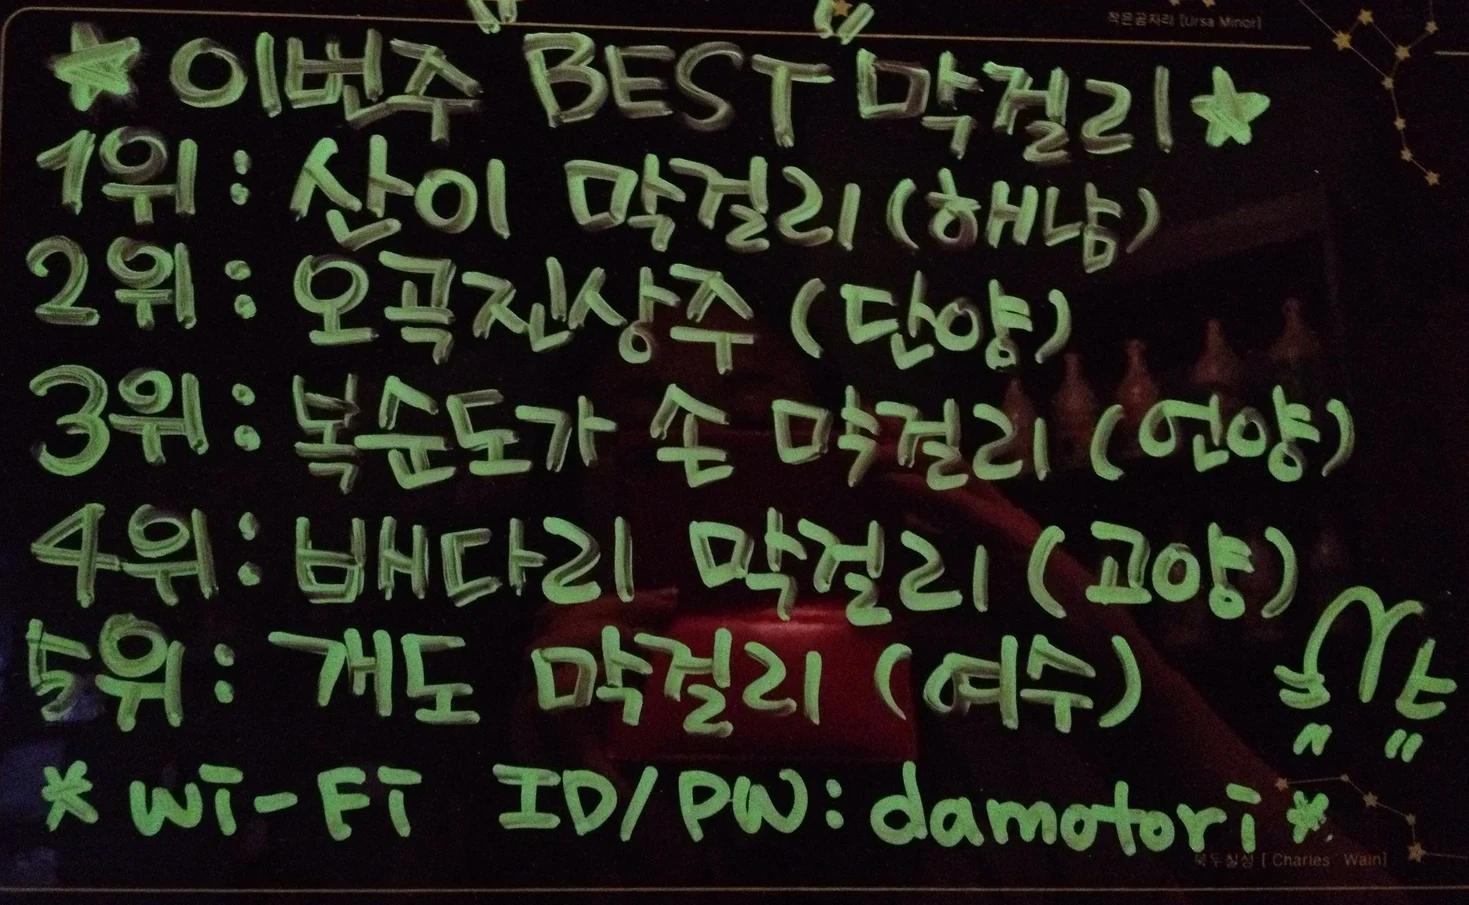 작은곰자리 [Ursa Minor]
★ 이번주 BEST 막걸리 ★
1위 : 산이 막걸리 (해남)
2위 : 오곡진상주 (단양)
3위 : 복순도가 손 막걸리 (언양)
4위 : 배다리 막걸리 (고양)
5위 : 개도 막걸리 (여수)
* Wi-Fi ID/PW : damotori *
북두칠성 [ Charles´ Wain]